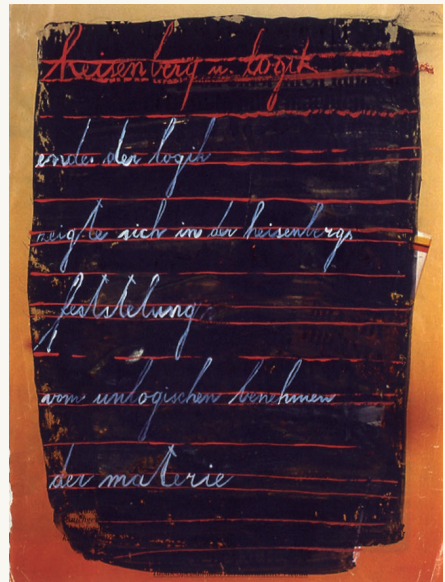 heisenberg u. logik
ende der logik
zeigte sich in der heisenbergs
feststelung
vom unlogischen benehmen
der materie